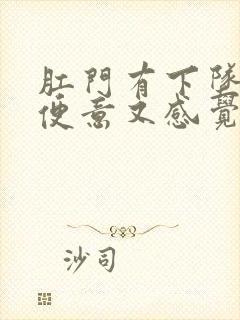 肛門有下墜
便意又感覺
沙司